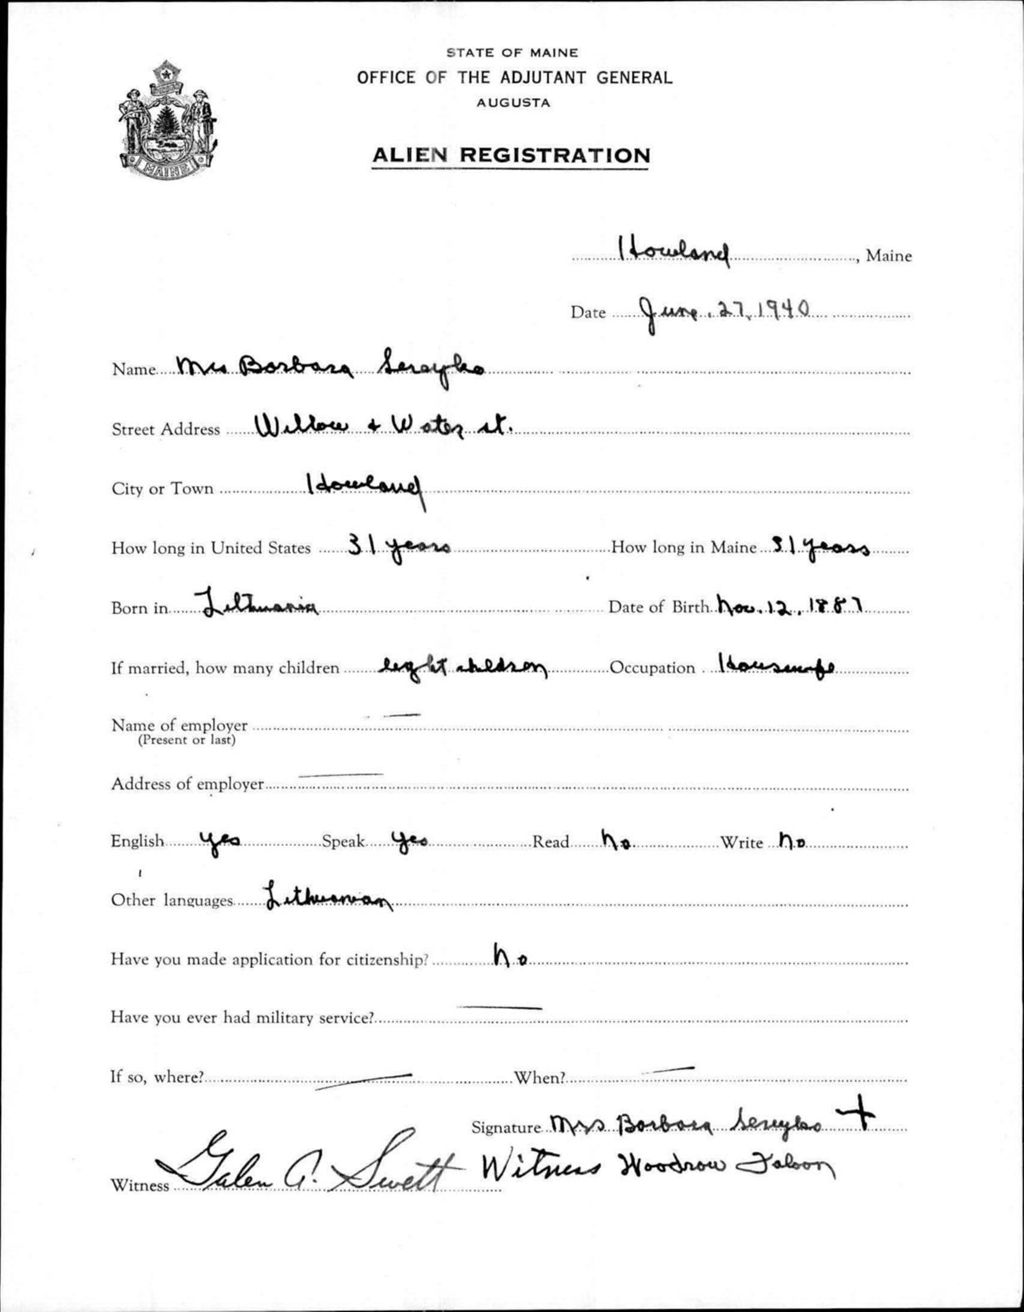 STATE OF MAINE
OFFICE OF THE ADJUTANT GENERAL
AUGUSTA
ALIEN REGISTRATION
MAINE
Howland, Maine
Date June. 27, 1940
Name Mrs Barbara Sereyko
Street Address Willow + Water st.
City or Town Howland
How long in United States 31 years How long in Maine 31 years
Born in Lithuania Date of Birth Nov. 12, 1887
If married, how many children eight children Occupation Housewife
Name of employer
(Present or last)
Address of employer
English yes Speak yes Read No Write No
Other languages Lithuanian
Have you made application for citizenship? No
Have you ever had military service?
If so, where? When?
Signature Mrs Barbara Sereyko +
Witness Galen A. Swett Witness Woodrow